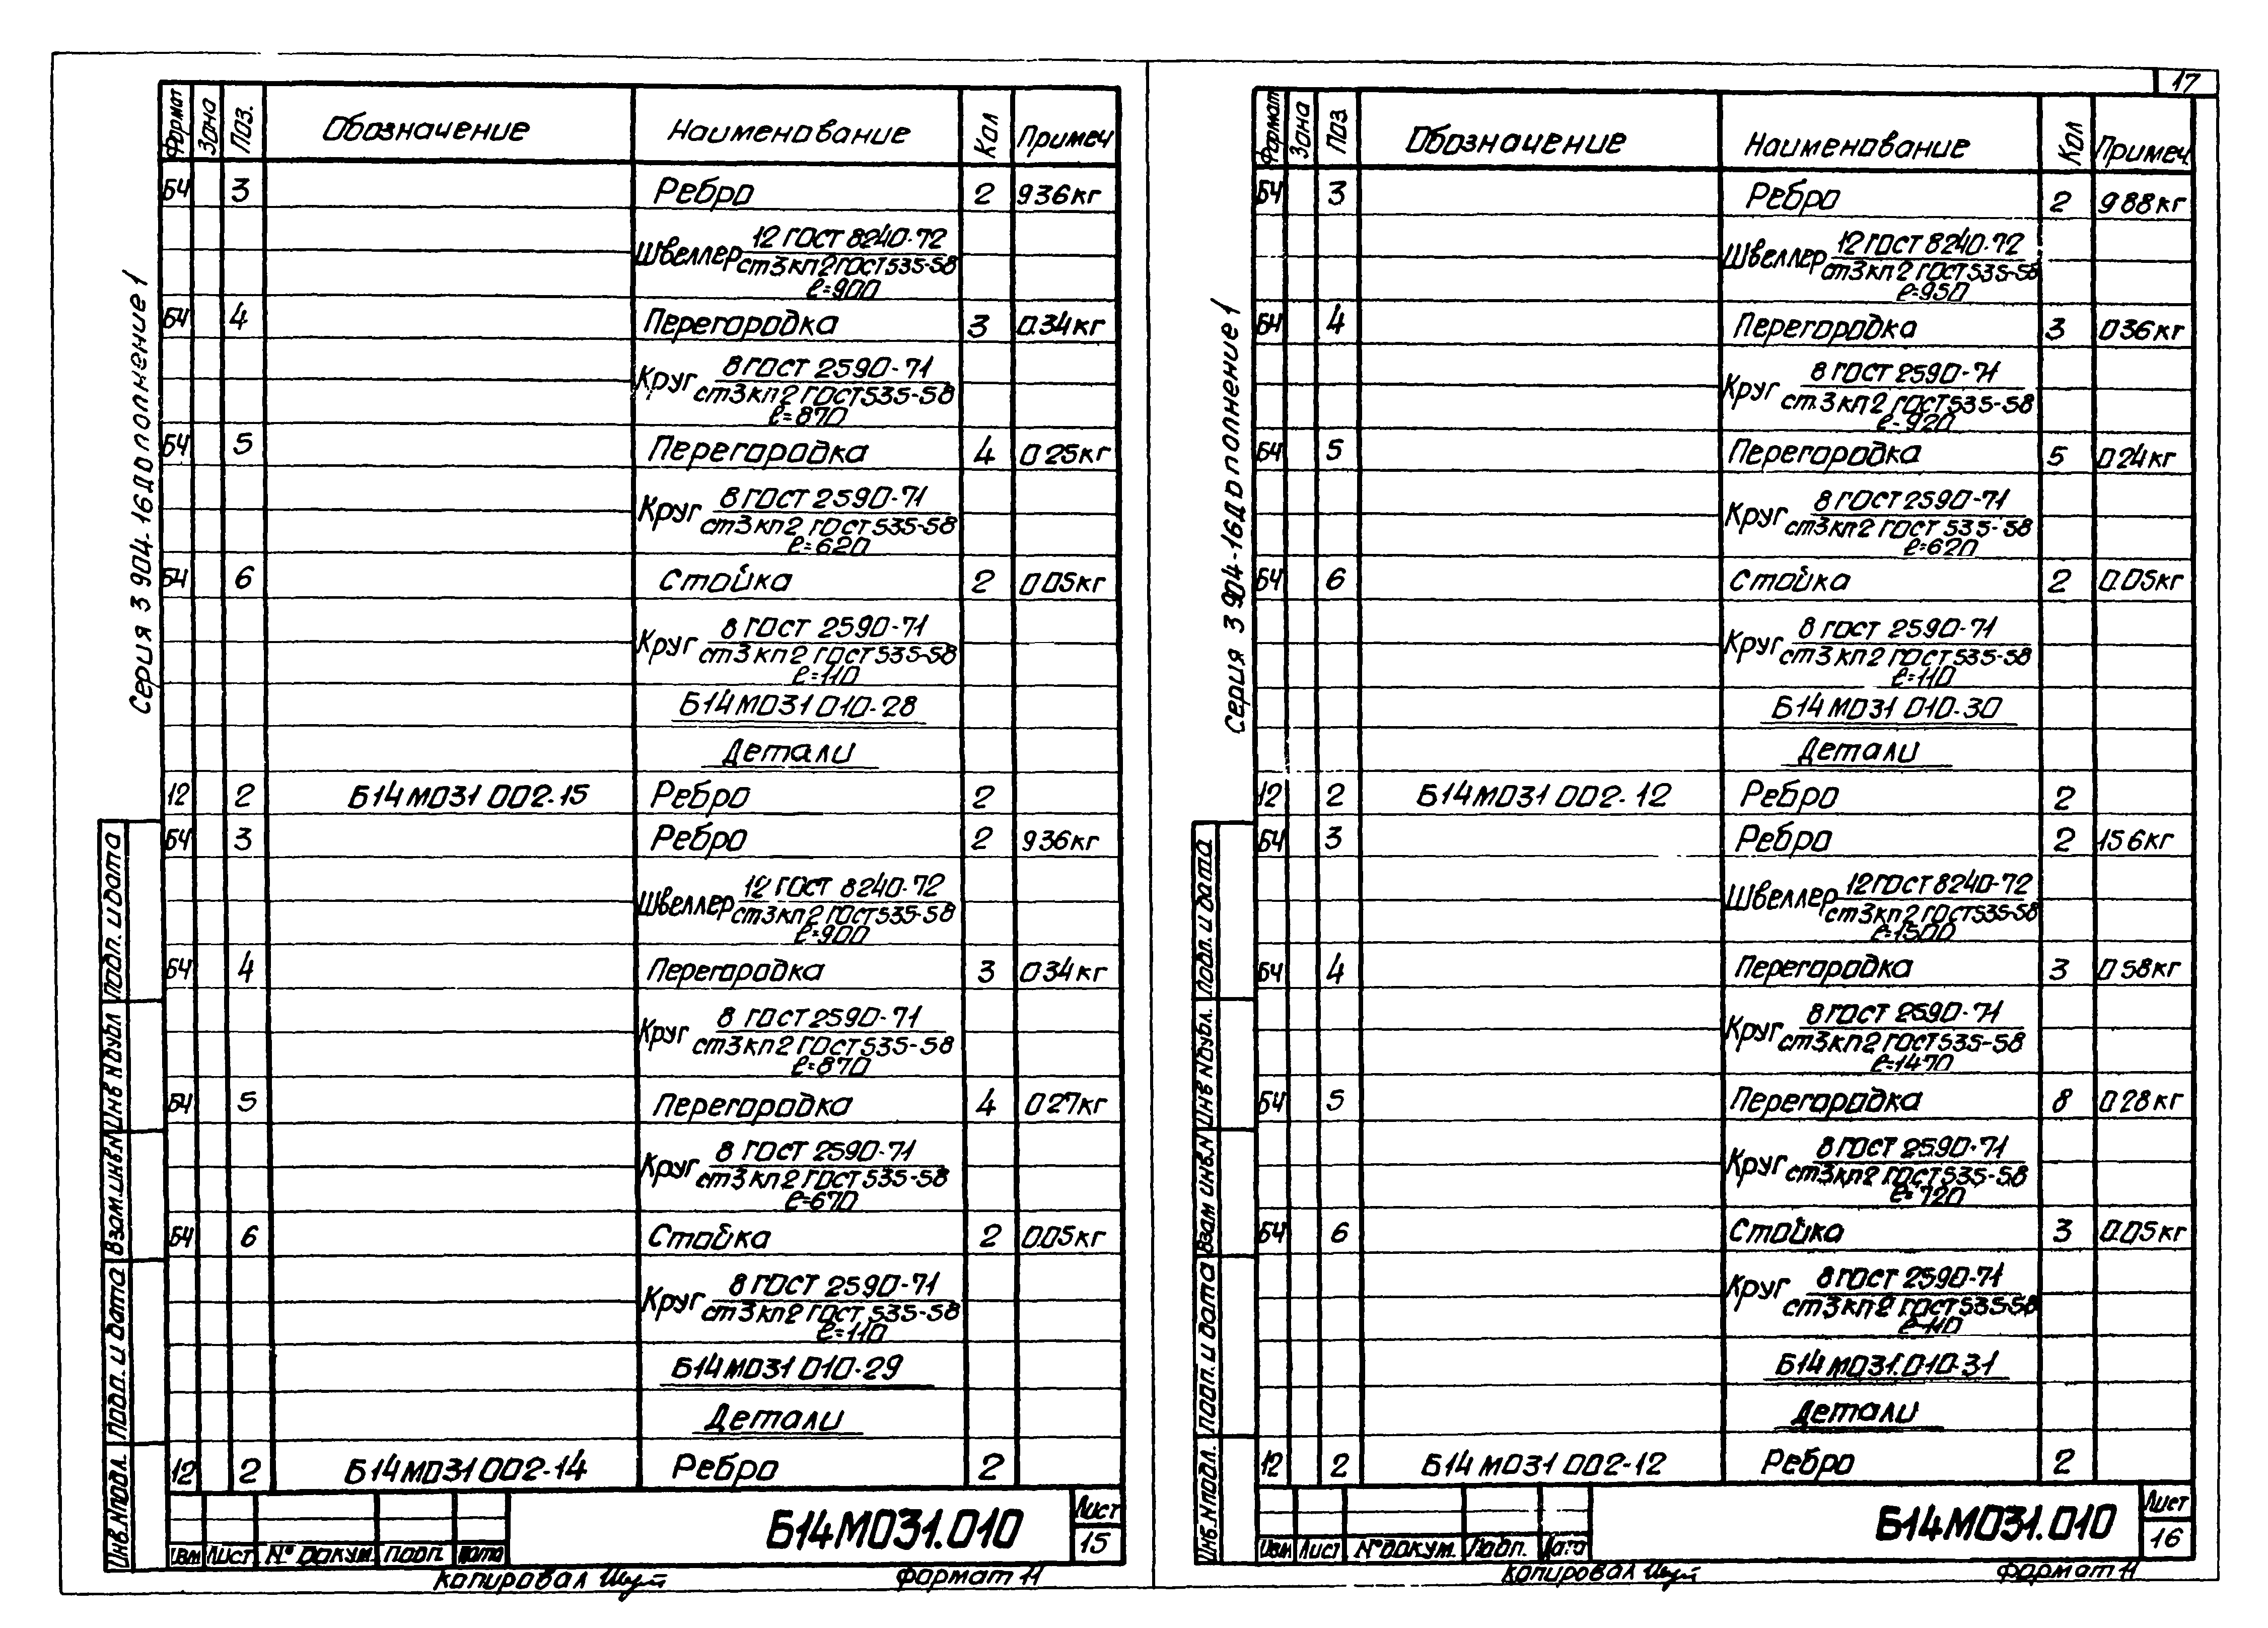 17
Серия 3 904-16 Дополнение 1
Формат Зона Поз. Обозначение Наименование Кол Примеч
БЧ 3 Ребро 2 936кг
Швеллер 12 ГОСТ 8240-72
ст3кп2 ГОСТ 535-58
ℓ=900
БЧ 4 Перегородка 3 034кг
Круг 8 ГОСТ 2590-71
ст3кп2 ГОСТ 535-58
ℓ=870
БЧ 5 Перегородка 4 025кг
Круг 8 ГОСТ 2590-71
ст3кп2 ГОСТ 535-58
ℓ=620
БЧ 6 Стойка 2 005кг
Круг 8 ГОСТ 2590-71
ст3кп2 ГОСТ 535-58
ℓ=110
Б14М031 010-28
Детали
12 2 Б14М031 002-15 Ребро 2
БЧ 3 Ребро 2 936кг
Швеллер 12 ГОСТ 8240-72
ст3кп2 ГОСТ 535-58
ℓ=900
БЧ 4 Перегородка 3 034кг
Круг 8 ГОСТ 2590-71
ст3кп2 ГОСТ 535-58
ℓ=870
БЧ 5 Перегородка 4 027кг
Круг 8 ГОСТ 2590-71
ст3кп2 ГОСТ 535-58
ℓ=670
БЧ 6 Стойка 2 0.05кг
Круг 8 ГОСТ 2590-71
ст3кп2 ГОСТ 535-58
ℓ=110
Б14М031 010-29
Детали
12 2 Б14М031 002-14 Ребро 2
Подп. и дата
Инв Nдубл
Взам.инв.N
Подп. и дата
Инв.Nподл.
Изм Лист N° докум. Подп. Дата
Б14М031.010
Лист
15
Копировал
Формат 11
Серия 3 904-16 Дополнение 1
Формат Зона Поз. Обозначение Наименование Кол Примеч.
БЧ 3 Ребро 2 988кг
Швеллер 12 ГОСТ 8240-72
ст3кп2 ГОСТ 535-58
ℓ=950
БЧ 4 Перегородка 3 036кг
Круг 8 ГОСТ 2590-71
ст.3кп2 ГОСТ 535-58
ℓ=920
БЧ 5 Перегородка 5 024кг
Круг 8 ГОСТ 2590-71
ст3кп2 ГОСТ 535-58
ℓ=620
БЧ 6 Стойка 2 0.05кг
Круг 8 ГОСТ 2590-71
ст3кп2 ГОСТ 535-58
ℓ=110
Б14М031 010-30
Детали
12 2 Б14М031 002-12 Ребро 2
БЧ 3 Ребро 2 156кг
Швеллер 12 ГОСТ 8240-72
ст3кп2 ГОСТ 535-58
ℓ=1500
БЧ 4 Перегородка 3 058кг
Круг 8 ГОСТ 2590-71
ст3кп2 ГОСТ 535-58
ℓ=1470
БЧ 5 Перегородка 8 028кг
Круг 8 ГОСТ 2590-71
ст3кп2 ГОСТ 535-58
ℓ=720
БЧ 6 Стойка 3 0.05кг
Круг 8 ГОСТ 2590-71
ст3кп2 ГОСТ 535-58
ℓ=110
Б14М031.010-31
Детали
12 2 Б14М031 002-12 Ребро 2
Подп. и дата
Инв Nдубл.
Взам инв.N
Подп. и дата
Инв.Nподл.
Изм Лист N° докум. Подп. Дата
Б14М031.010
Лист
16
Копировал
Формат 11